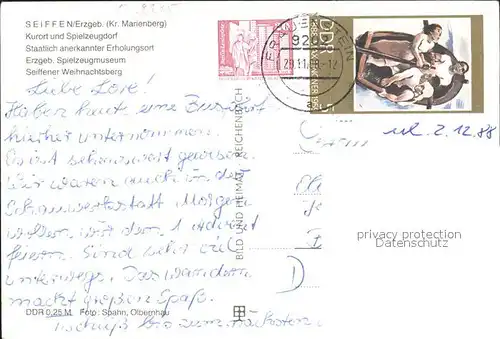 SEIFFEN/Erzgeb. (Kr. Marienberg)
Kurort und Spielzeugdorf
Staatlich anerkannter Erholungsort
Erzgeb. Spielzeugmuseum
Seiffener Weihnachtsberg
Liebe Lore!
Haben heut eine Busfahrt
hierher unternommen.
Es ist sehenswert gewesen.
Wir waren auch in der
Schauwerkstatt Morgen
wollen wir den 1 Advent
feiern. Sind sehr viel
unterwegs. Das wandern
macht großen Spaß.
DDR 0,25 M Foto: Spahn, Olbernhau
bis zum nächsten
BILD UND HEIMAT REICHENBACH
DDR
2.12.88
D
privacy protection
Datenschutz